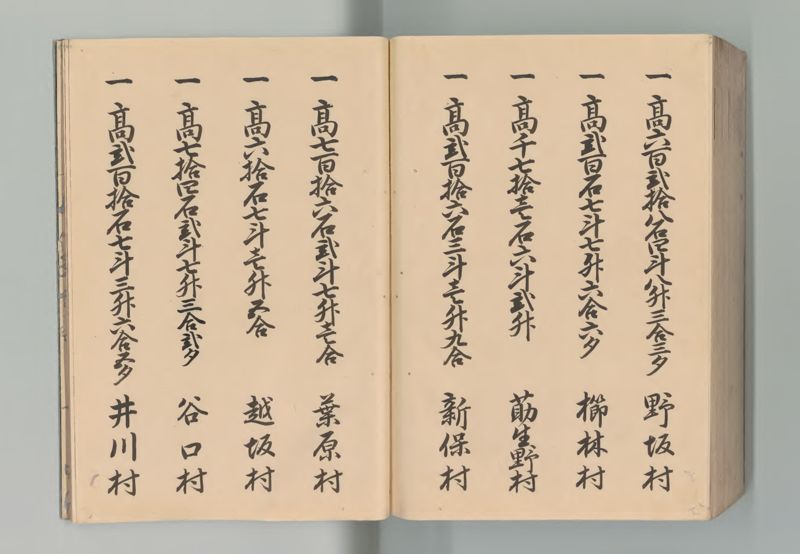 一 高六百弐拾八石四斗八升三合三夕 野坂村
一 高弐百石七斗七升六合六夕 櫛林村
一 高千七拾壱石六斗弐升 莇生野村
一 高弐百拾六石三斗壱升九合 新保村
一 高七百拾六石弐斗七升壱合 葉原村
一 高六拾石七斗壱升五合 越坂村
一 高七拾四石弐斗七升三合弐夕 谷口村
一 高弐百拾石七斗三升六合五夕 井川村